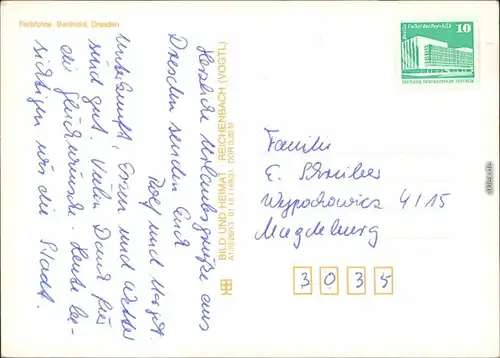 Farbfotos Barthold, Dresden
Herzliche Urlaubsgrüße aus
Dresden senden Euch
Rolf und Margot.
Unterkunft, Essen und Wetter
sind gut. Vielen Dank für
die Glückwünsche. Heute be-
sichtigen wir die Stadt.
BILD UND HEIMAT REICHENBACH (VOGTL)
DDR 0,20 M
Berlin Palast der Republik
10
DEUTSCHE DEMOKRATISCHE REPUBLIK
Familie
E. Schreiber
4115
Magdeburg
3035